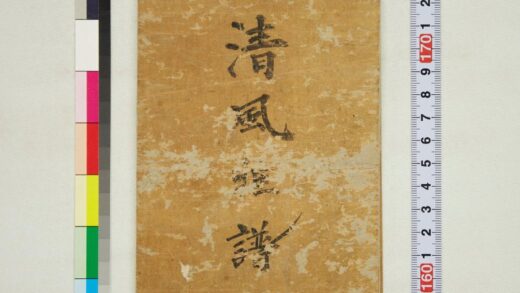 清風雅譜
2
1
170
9
8
7
6
5
4
3
2
1
160